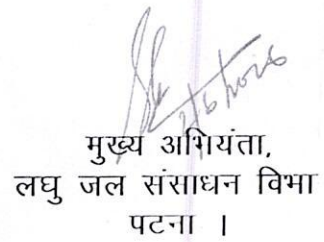 मुख्य अभियंता,
लघु जल संसाधन विभा
पटना ।